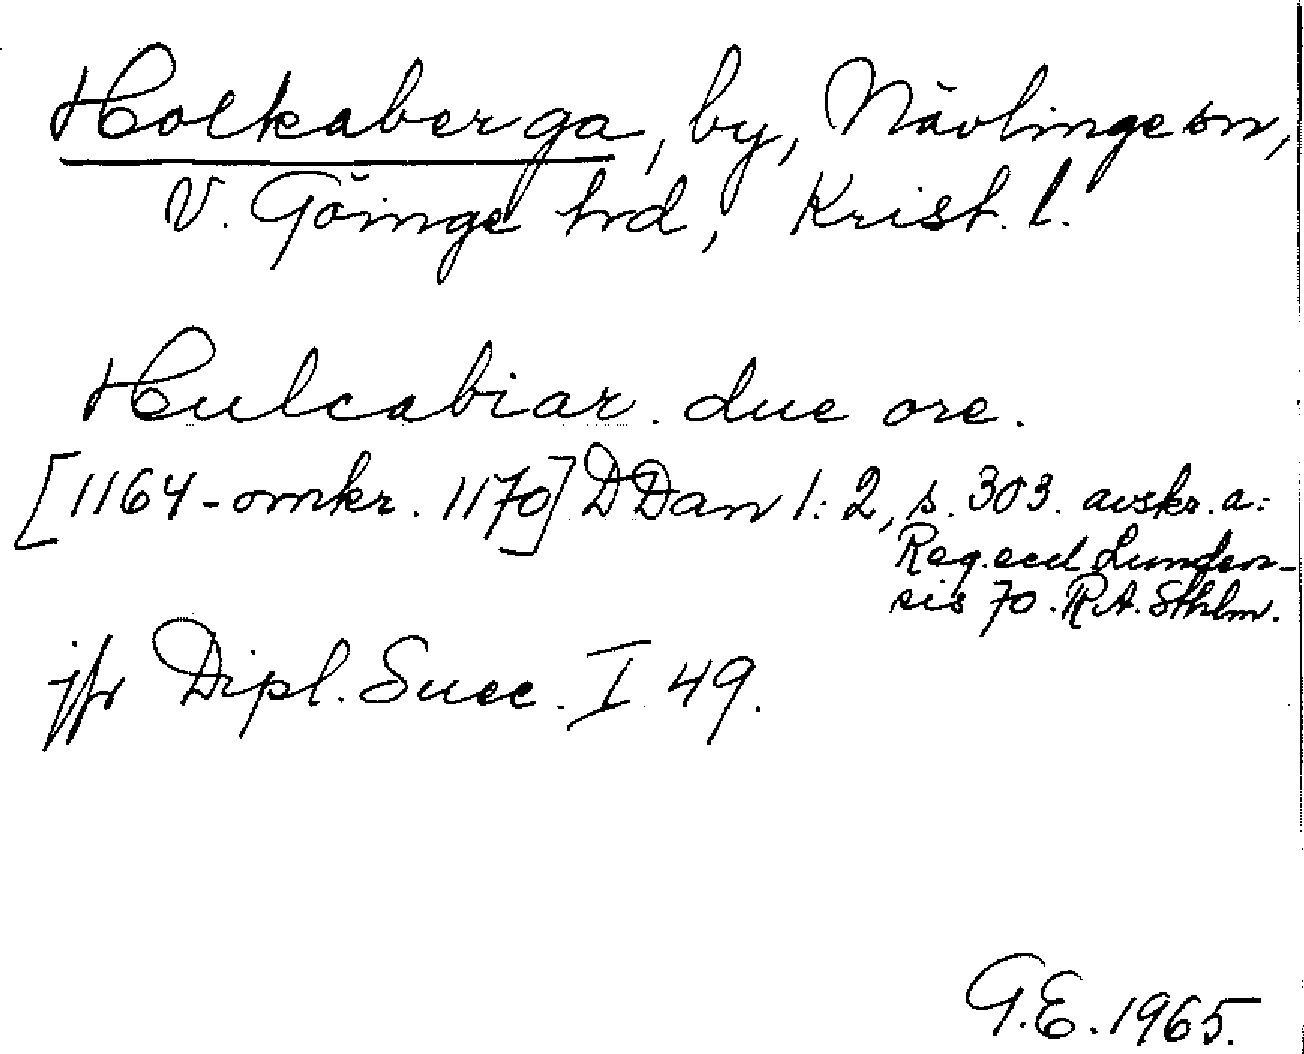 Holkaberga, by, Nävlinge sn,
V. Göinge hd, Krist. l.
Hulcabiar. due ore.
[1164-omkr. 1170] DDan 1:2, s. 303. avskr. a:
Reg. eccl Lunden-
sis 70. R.A. Sthlm.
jfr Dipl. Suec. I 49.
G.E. 1965.